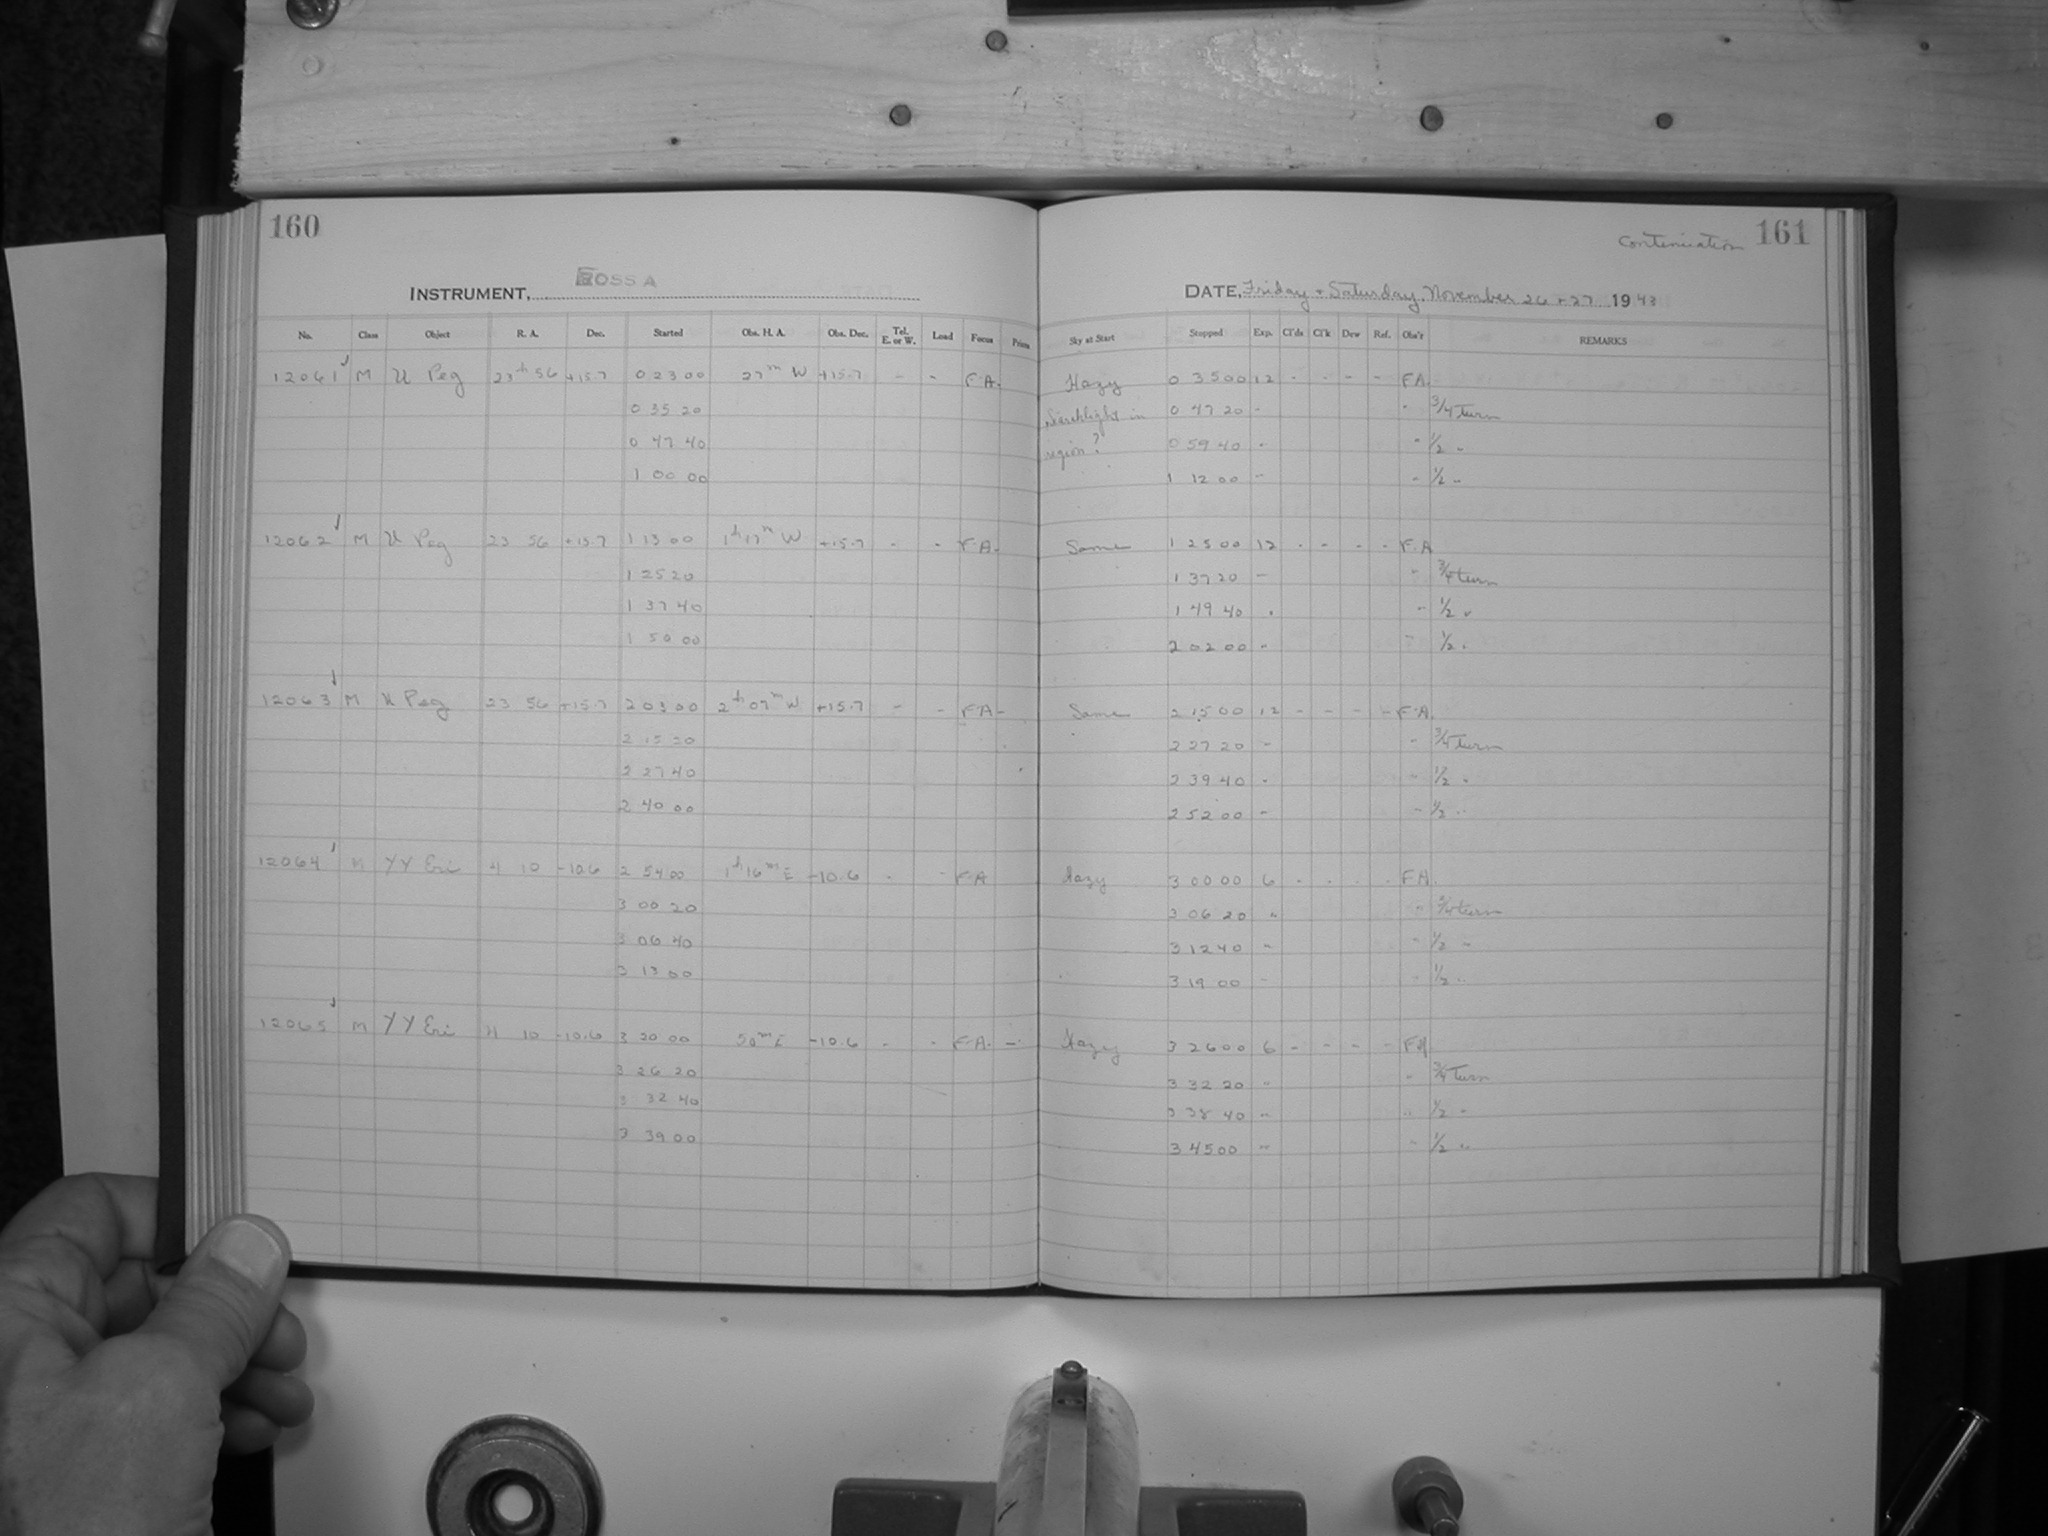 160
INSTRUMENT, ROSS A
No. Class Object R. A. Dec. Started Obs. H. A. Obs. Dec. Tel. E. or W. Load Focus Prism
12061 M U Peg 23h 56 +15.7 0 23 00 27m W +15.7 - - F.A.
0 35 20
0 47 40
1 00 00
12062 M U Peg 23 56 +15.7 1 13 00 1h 17m W +15.7 - - F.A.
1 25 20
1 37 40
1 50 00
12063 M U Peg 23 56 +15.7 2 03 00 2h 07m W +15.7 - - F.A -
2 15 20
2 27 40
2 40 00
12064 M YY Eri 4 10 -10.6 2 54 00 1h 16m E -10.6 - - F.A
3 00 20
3 06 40
3 13 00
12065 M YY Eri 4 10 -10.6 3 20 00 50m E -10.6 - - F.A. -
3 26 20
3 32 40
3 39 00
Continuation 161
DATE, Friday + Saturday, November 26 + 27 1943
Sky at Start Stopped Exp. Cl'ds Cl'k Dew Ref. Obs'r REMARKS
Hazy 0 35 00 12 - - - - F.A.
Searchlight in 0 47 20 - " 3/4 turn
region? 0 59 40 - " 1/2 "
1 12 00 - " 1/2 "
Same 1 25 00 12 - - - - F.A
1 37 20 - " 3/4 turn
1 49 40 " " 1/2 "
2 02 00 " " 1/2 "
Same 2 15 00 12 - - - - F.A.
2 27 20 - " 3/4 turn
2 39 40 - " 1/2 "
2 52 00 - " 1/2 "
Hazy 3 00 00 6 - - - - F.A.
3 06 20 " " 3/4 turn
3 12 40 " " 1/2 "
3 19 00 - " 1/2 "
Hazy 3 26 00 6 - - - - F.A
3 32 20 " " 3/4 turn
3 38 40 " " 1/2 "
3 45 00 " " 1/2 "